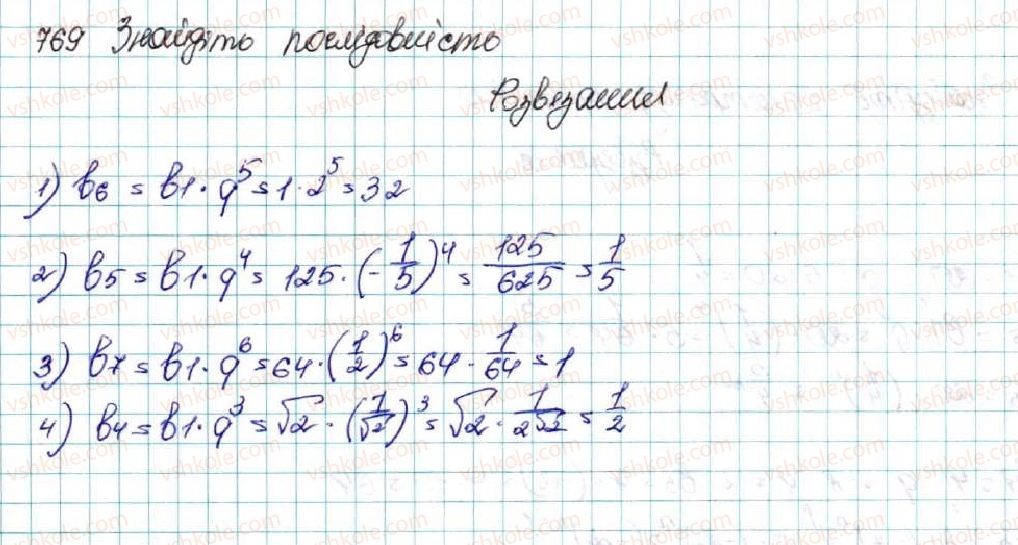 769 Знайдіть послідовність
Розвезання
1) b6 = b1 · q^5 = 1 · 2^5 = 32
2) b5 = b1 · q^4 = 125 · (-1/5)^4 = 125/625 = 1/5
3) b7 = b1 · q^6 = 64 · (1/2)^6 = 64 · 1/64 = 1
4) b4 = b1 · q^3 = √2 · (1/√2)^3 = √2 · 1/2√2 = 1/2